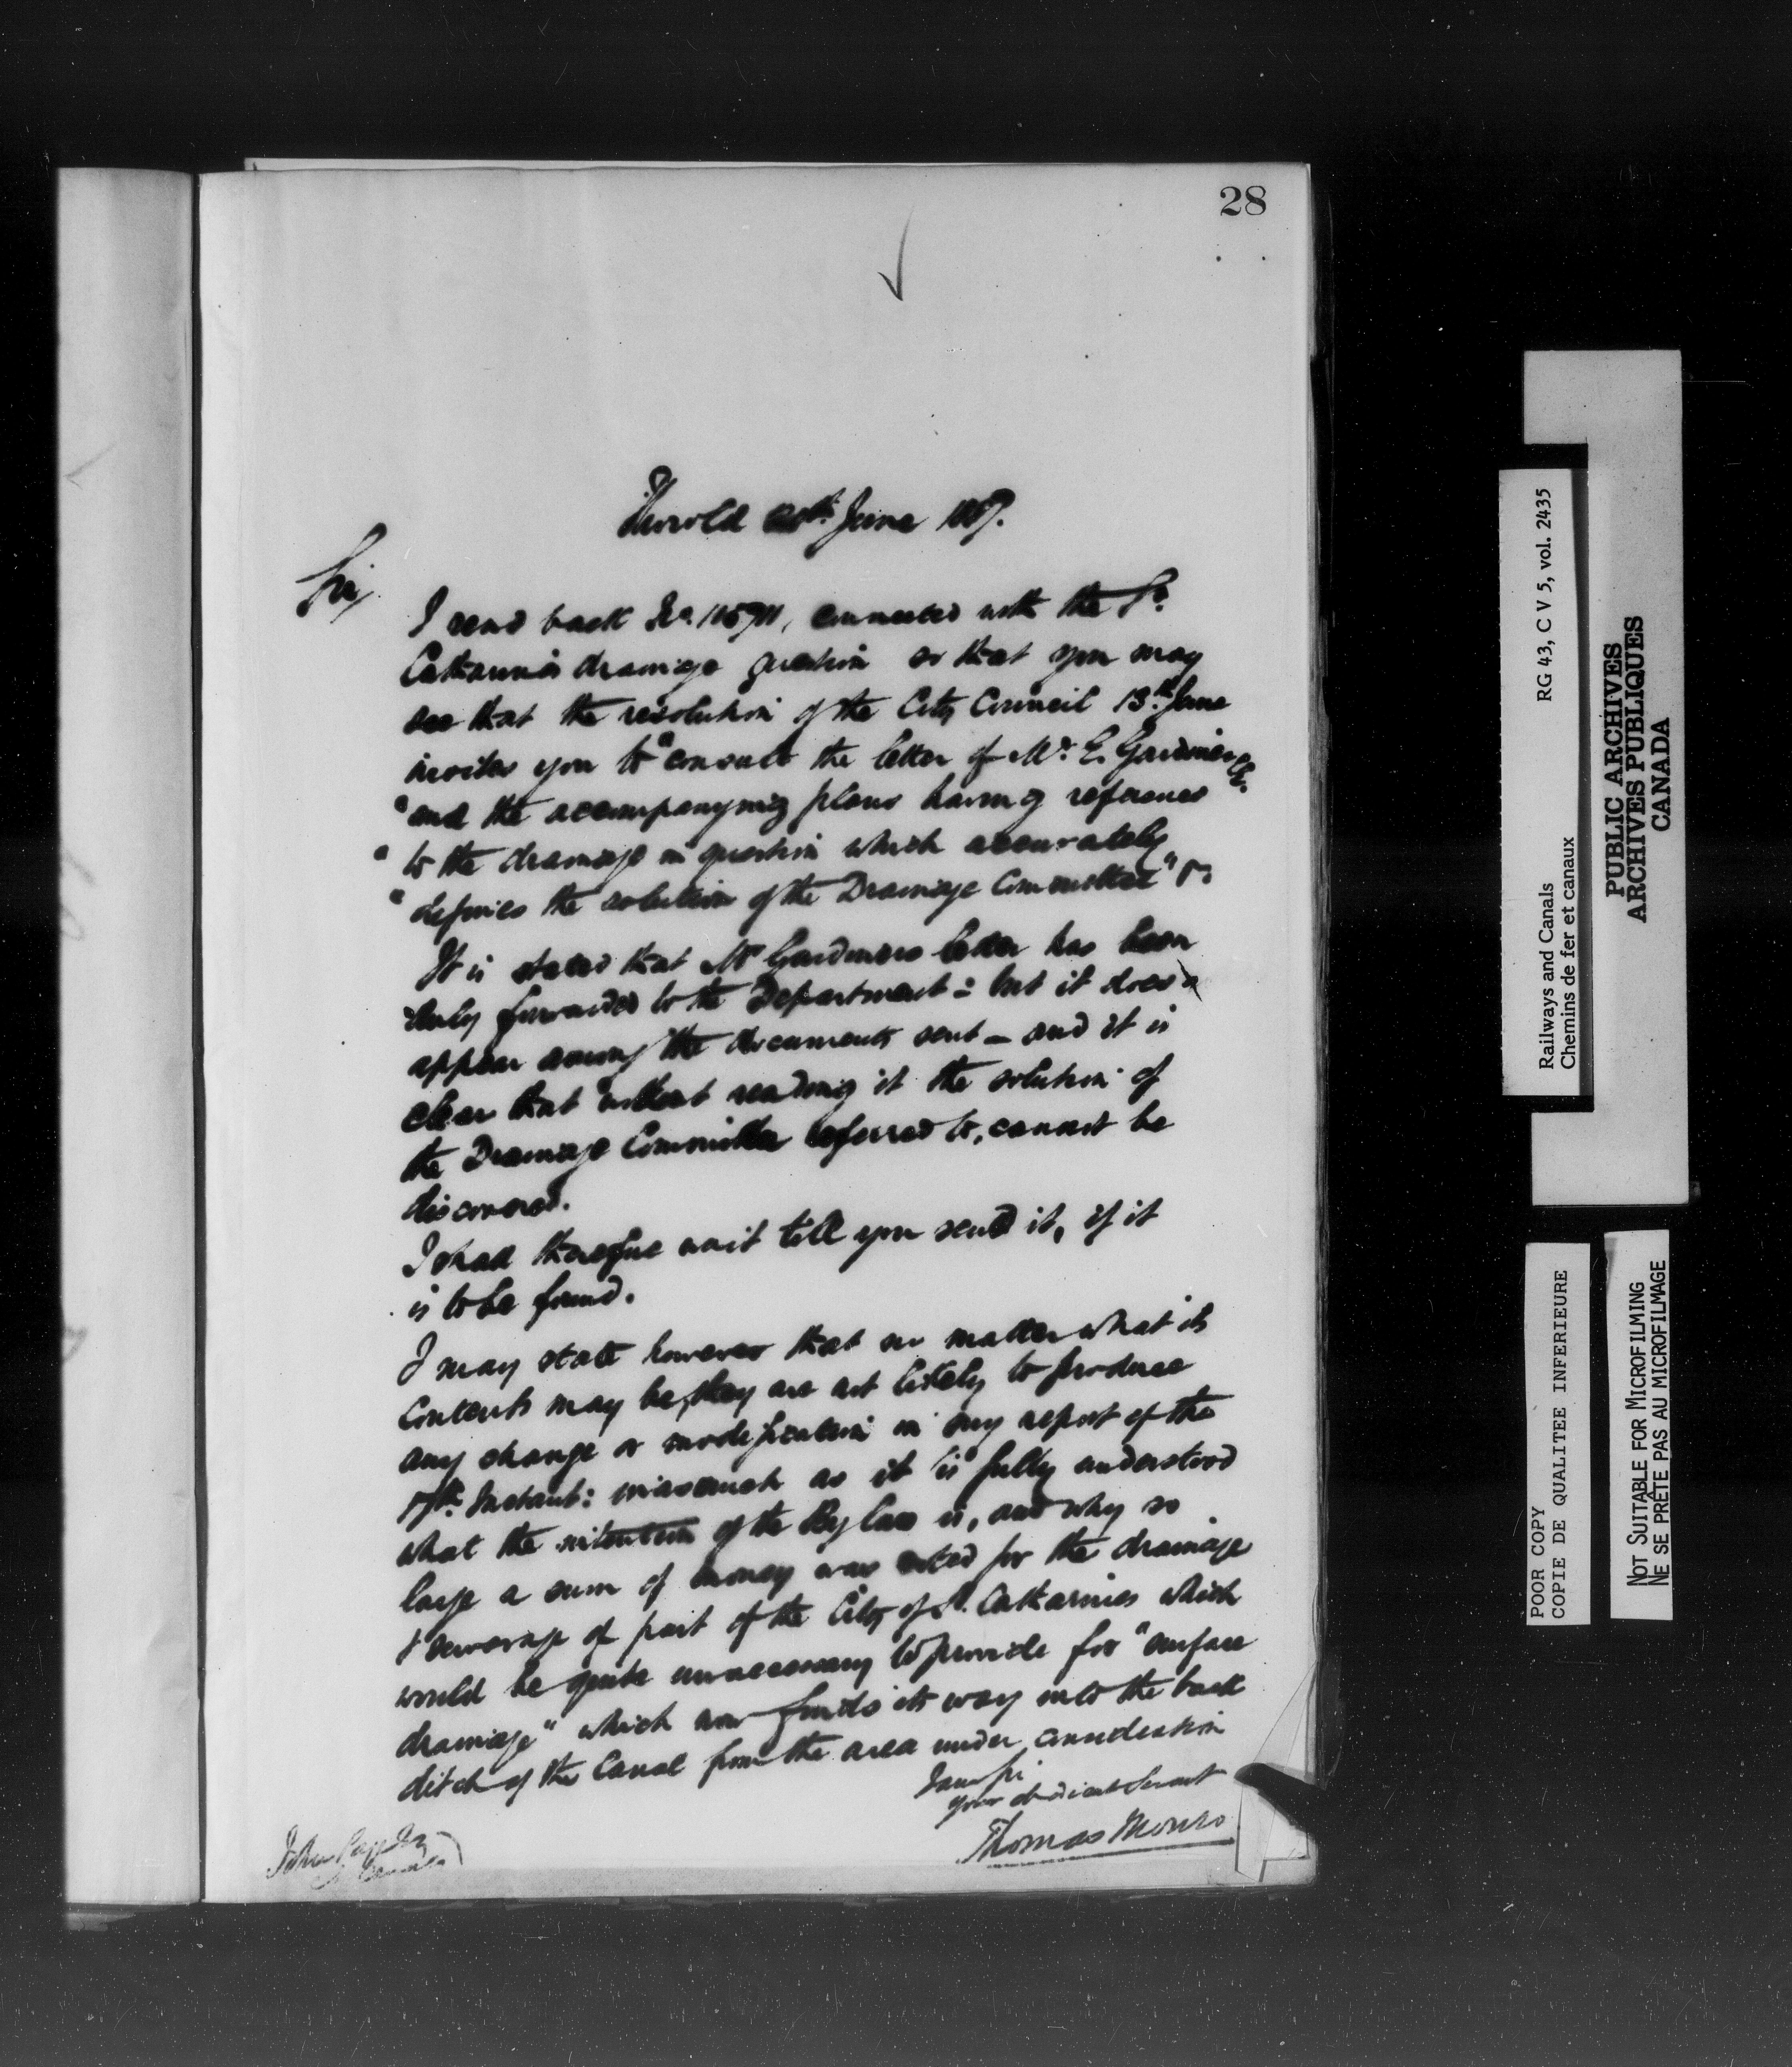 28
Thorold 20th June 1887.
Sir,
I send back No. 115911, connected with the St.
Catharines drainage question so that you may
see that the resolution of the City Council 13th June
invites you to "consult the letter of Mr. E. Gardiner C.E.
"and the accompanying plans having reference
"to the drainage in question which accurately
"defines the solution of the Drainage Committee" &c.
It is stated that Mr Gardiners letter has been
duly forwarded to the Department: but it does
appear among the documents sent — and it is
clear that without reading it the solution of
the Drainage Committee referred to, cannot be
discovered.
I shall therefore wait till you send it, if it
is to be found.
I may state however that no matter what its
contents may be, they are not likely to produce
any change or modification in my report of the
17th Instant: inasmuch as it is fully understood
what the intention of the By law is, and why so
large a sum of money was voted for the drainage
& sewerage of part of the City of St. Catharines which
would be quite unnecessary to provide for "surface
drainage" which now finds its way into the back
ditch of the Canal from the area under consideration
I am Sir
your obedient Servant
Thomas Monro
John
Railways and Canals RG 43, C V 5, vol. 2435
Chemins de fer et canaux
PUBLIC ARCHIVES
ARCHIVES PUBLIQUES
CANADA
POOR COPY
COPIE DE QUALITEE INFERIEURE
NOT SUITABLE FOR MICROFILMING
NE SE PRÊTE PAS AU MICROFILMAGE